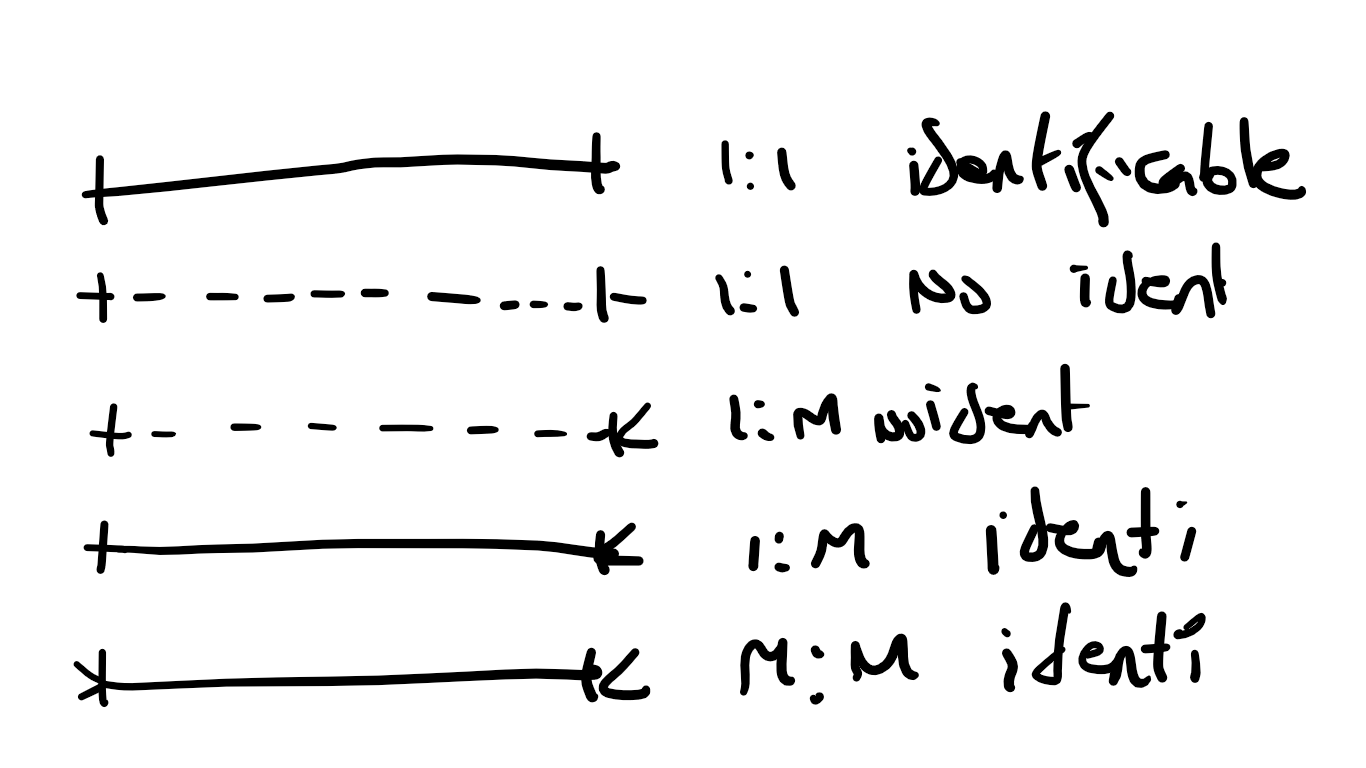 1:1 identificable
1:1 No ident
1:M no ident
1:M identi
M:M identi